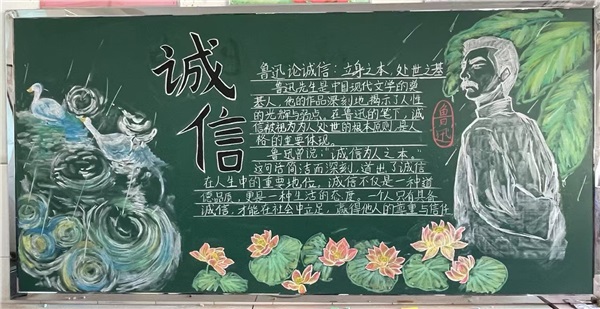 诚信
鲁迅论诚信：立身之本，处世之基
鲁迅先生是中国现代文学的奠
基人，他的作品深刻地揭示了人性
的光辉与弱点。在鲁迅的笔下，诚
信被视为为人处世的根本原则，是人
格的重要体现。
鲁迅曾说：“诚信为人之本。”
这句话简洁而深刻，道出了诚信
在人生中的重要地位。诚信不仅是一种道
德品质，更是一种生活的态度。一个人只有具备
诚信，才能在社会中立足，赢得他人的尊重与信任
鲁迅